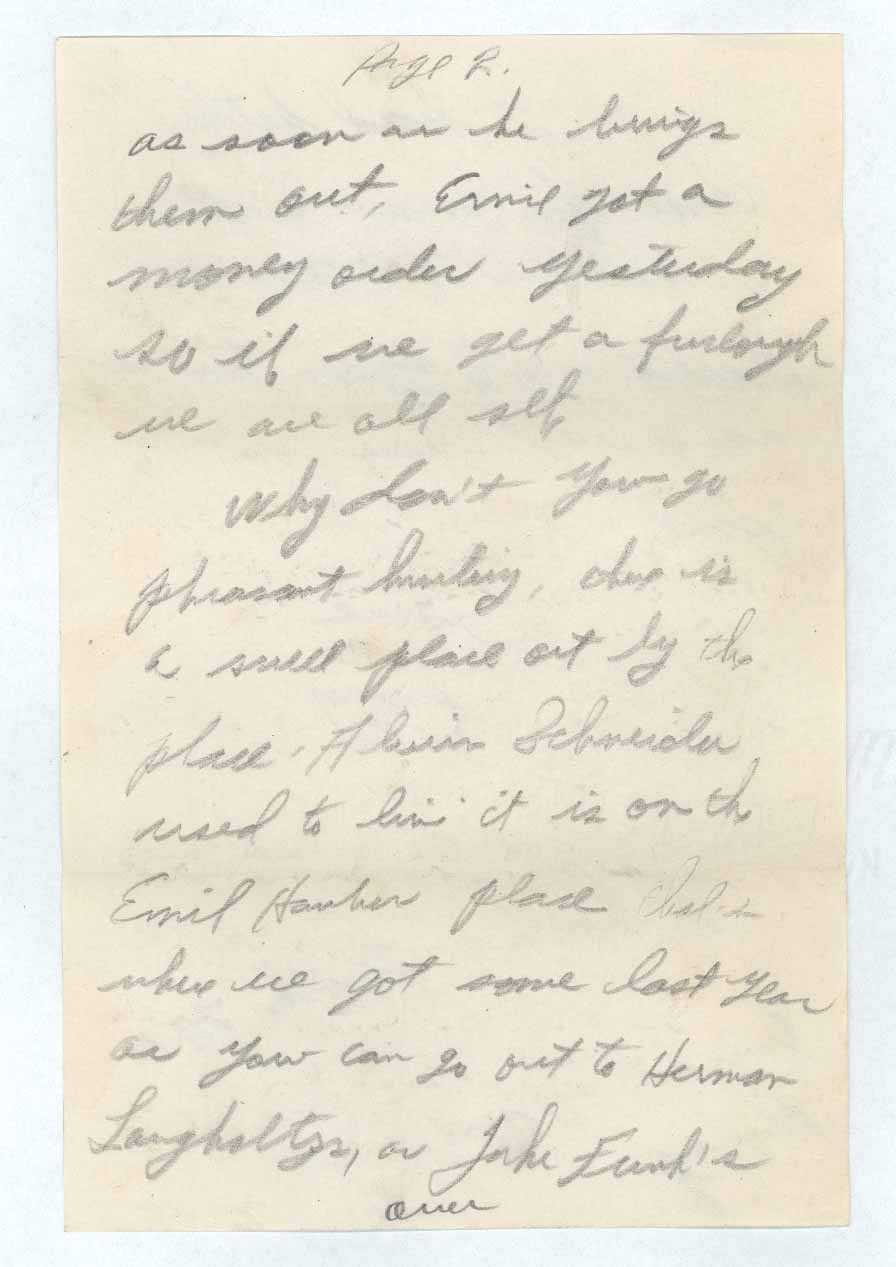 Page 2.
as soon as he brings
them out, Ernie got a
money order yesterday
so if we get a furlough
we are all set,
Why don't you go
pheasant hunting, there is
a swell place out by the
place Alvin Schneider
used to live it is on the
Emil Hauber place that is
where we got some last year
or you can go out to Herman
Langholtzs, or Jake Funk's
over